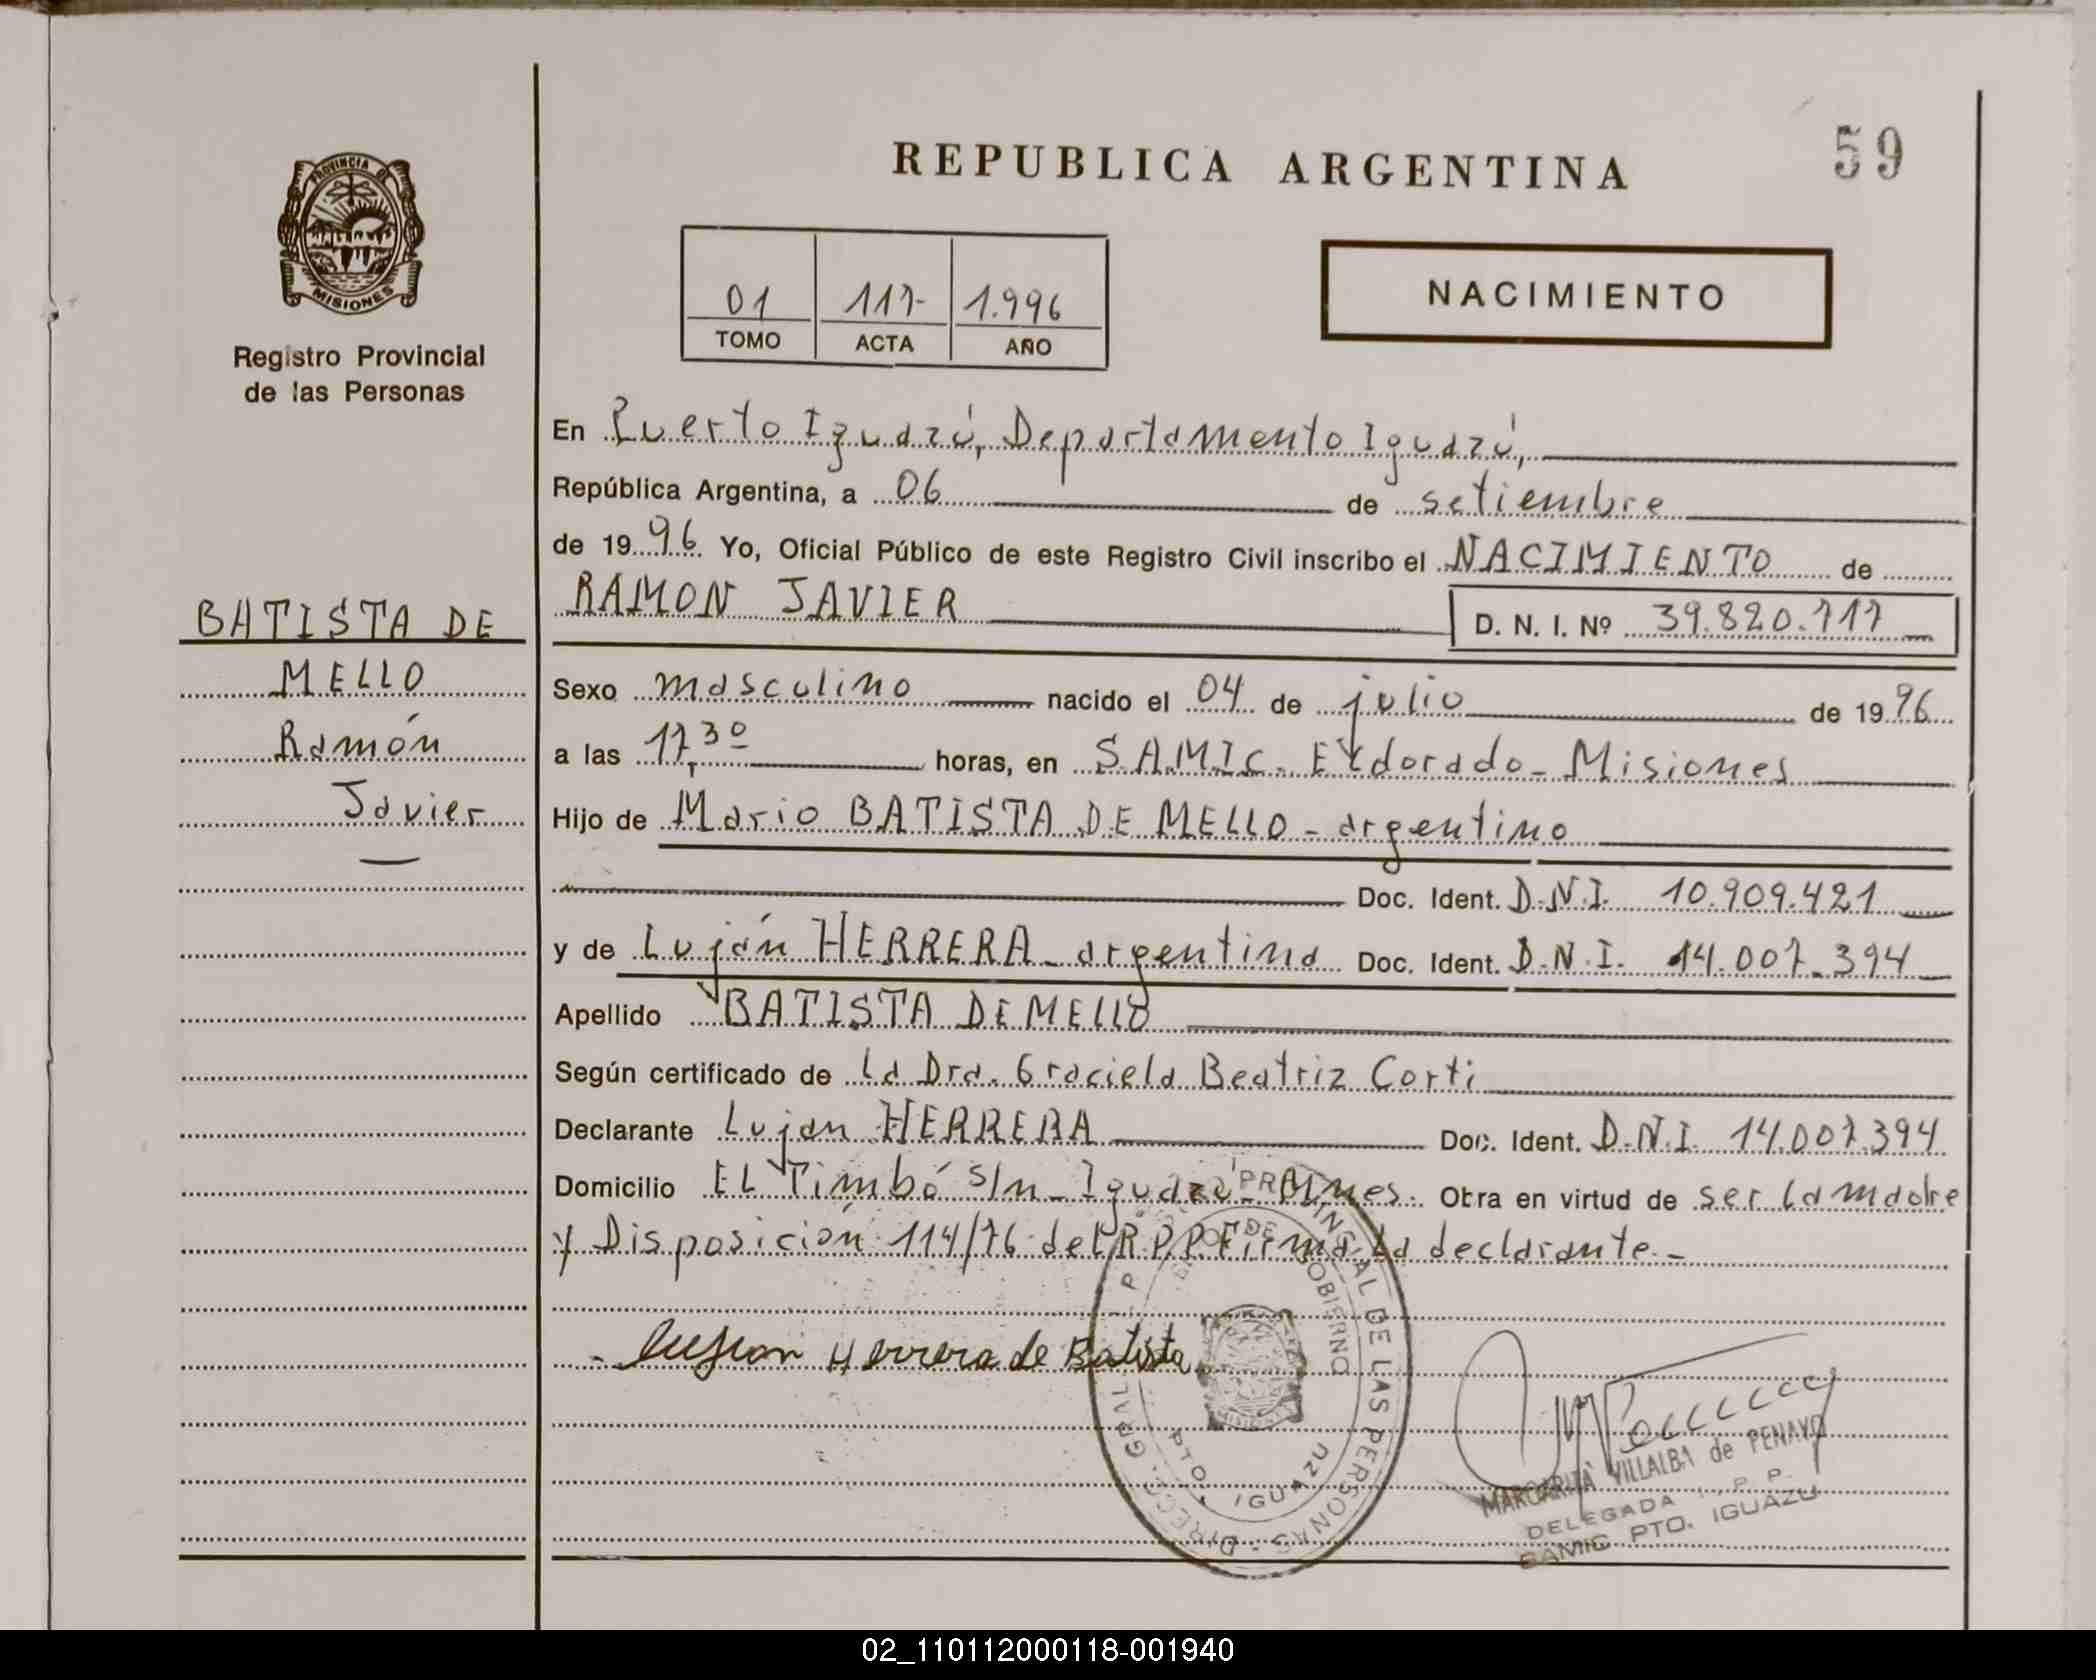 PROVINCIA DE
MISIONES
Registro Provincial
de las Personas
REPUBLICA ARGENTINA
59
01 117- 1.996
TOMO ACTA AÑO
NACIMIENTO
En Puerto Iguazú, Departamento Iguazú,
República Argentina, a 06 de setiembre
de 1996. Yo, Oficial Público de este Registro Civil inscribo el NACIMIENTO de
RAMON JAVIER D. N. I. Nº 39.820.717
BATISTA DE
MELLO
Ramón
Javier
Sexo masculino nacido el 04 de julio de 1996
a las 17,30 horas, en S.A.M.I.C. Eldorado - Misiones
Hijo de Mario BATISTA DE MELLO - argentino
Doc. Ident. D.N.I. 10.909.421
y de Luján HERRERA - argentina Doc. Ident. D.N.I. 14.007.394
Apellido BATISTA DE MELLO
Según certificado de la Dra. Graciela Beatriz Corti
Declarante Lujan HERRERA Doc. Ident. D.N.I. 14.007.394
Domicilio EL Timbó S/n - Iguazú - Mnes. Obra en virtud de ser la madre
y Disposición 114/76 del R.P.P. Firma la declarante. -
Lujan Herrera de Batista
PROVINCIAL DE LAS PERSONAS - DIRECC. GRAL.
DE GOBIERNO
IGUAZU
MARGARITA VILLALBA de PENAYO
DELEGADA R. P. P.
SAMIC PTO. IGUAZU
02_110112000118-001940